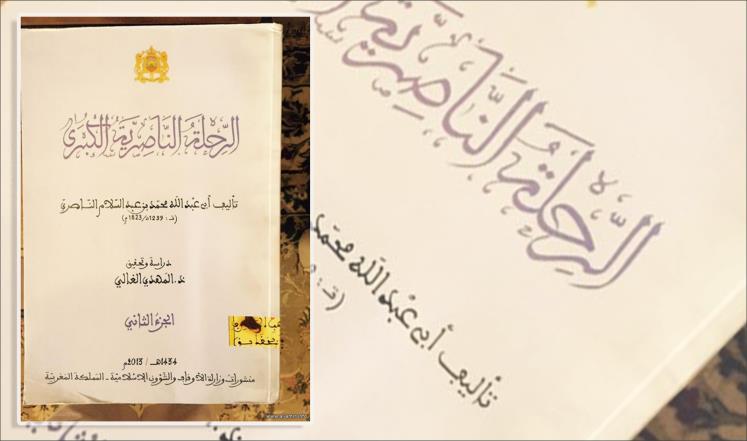 الرِّحلَةُ النَّاصِرِيَّةُ الكُبْرَى
تأليف أبي عبد الله محمد بن عبد السلام الناصري
(ت: 1239هـ/1823م)
دراسة وتحقيق
د. المهدي الغالي
الجزء الثاني
1434هـ / 2013م
منشورات وزارة الأوقاف والشؤون الإسلامية - المملكة المغربية
الرِّحلَةُ النَّاصِرِيَّةُ
تأليف أبي عبد الله محمد
(ت: